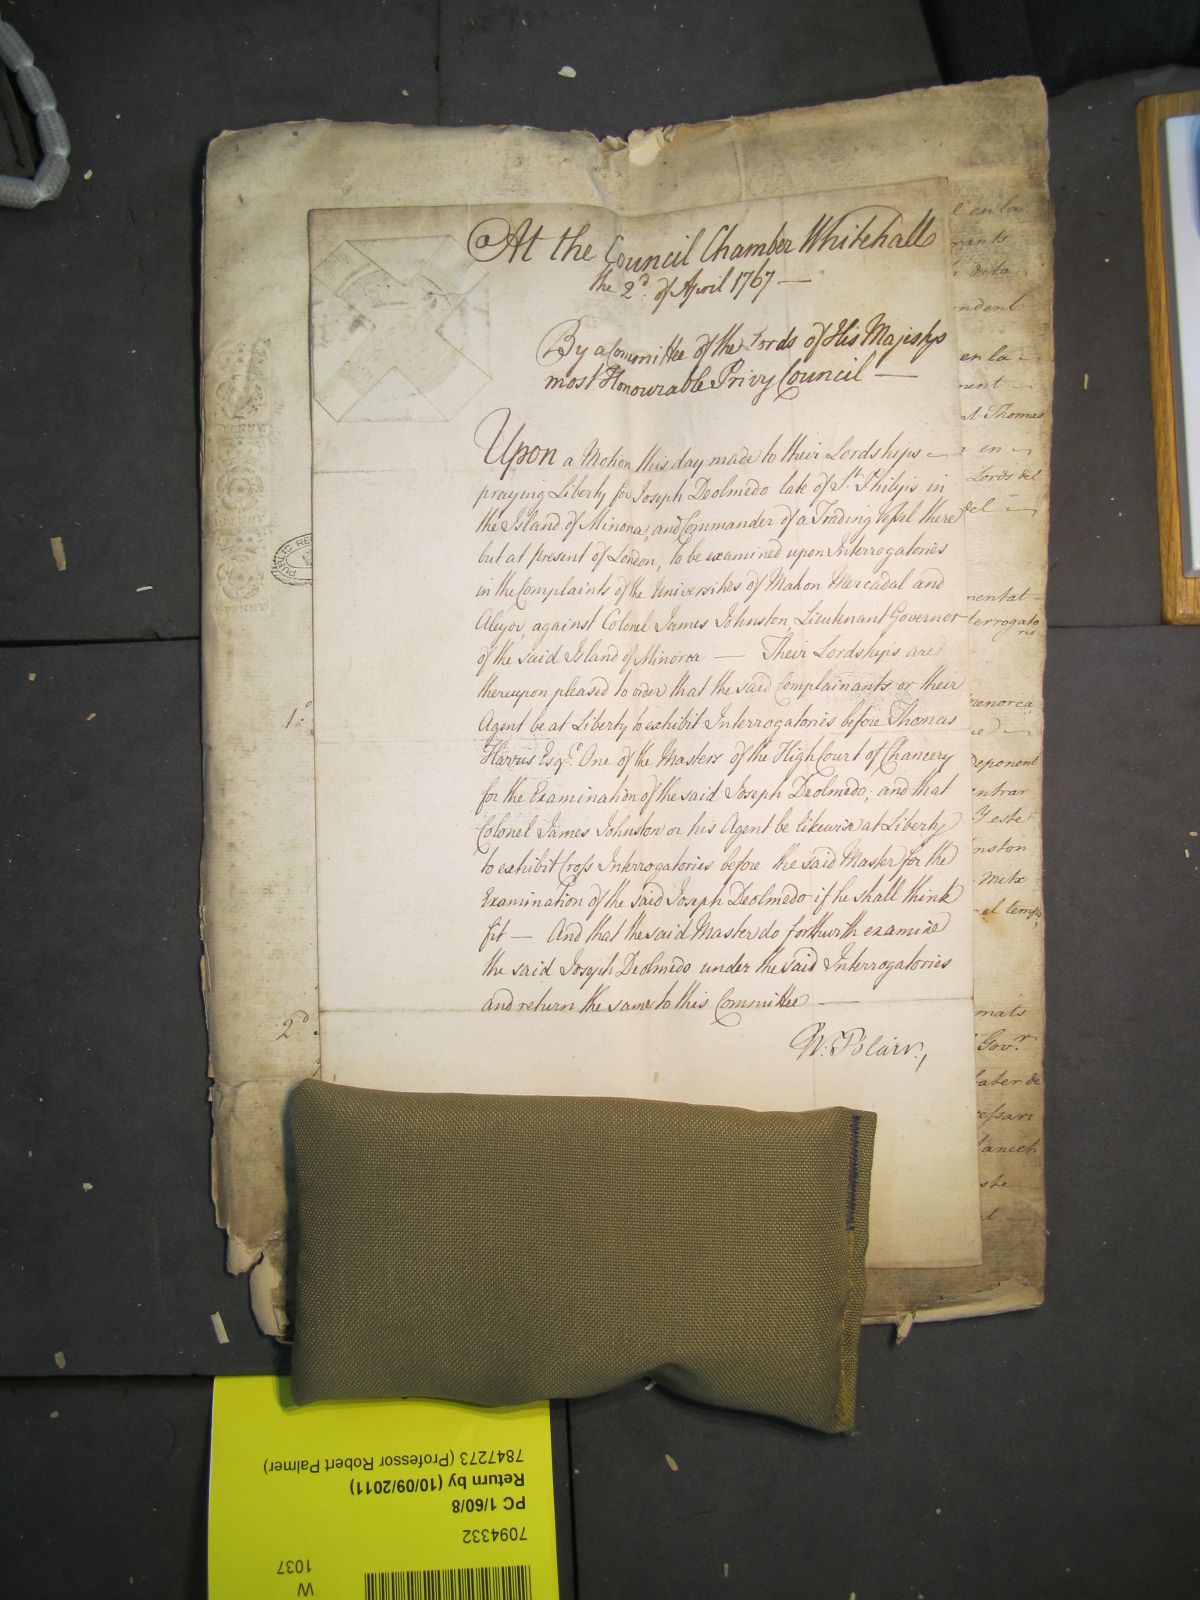 At the Council Chamber Whitehall
the 2d. of April 1767 —
By a Committee of the Lords of His Majestys
most Honourable Privy Council —
Upon a Motion this day made to their Lordships —
praying Liberty for Joseph Deolmedo late of St. Philips in
the Island of Minorca, and Commander of a Trading Vessel there
but at present of London, to be examined upon Interrogatories
in the Complaints of the Universities of Mahon Mercadal and
Alayor, against Colonel James Johnston, Lieutenant Governor
of the said Island of Minorca — Their Lordships are
thereupon pleased to order that the said Complainants or their
Agent be at Liberty to exhibit Interrogatories before Thomas
Harris Esqr. One of the Masters of the High Court of Chancery
for the Examination of the said Joseph Deolmedo; and that
Colonel James Johnston or his Agent be likewise at Liberty
to exhibit Cross Interrogatories before the said Master for the
Examination of the said Joseph Deolmedo if he shall think
fit — And that the said Master do forthwith examine
the said Joseph Deolmedo under the said Interrogatories
and return the same to this Committee —
W: Blair.,
1.o
2d.
PENNY
PUBLIC RE
e en la
en la
Thomas
en
Lords del
del
terrogato
rio
menorca
Deponent
entrar
Y este
nston
Mitx
el temps
mats
Govr.
ater de
essari
7847273 (Professor Robert Palmer)
Return by (10/09/2011)
PC 1/60/8
7094332
1037
W